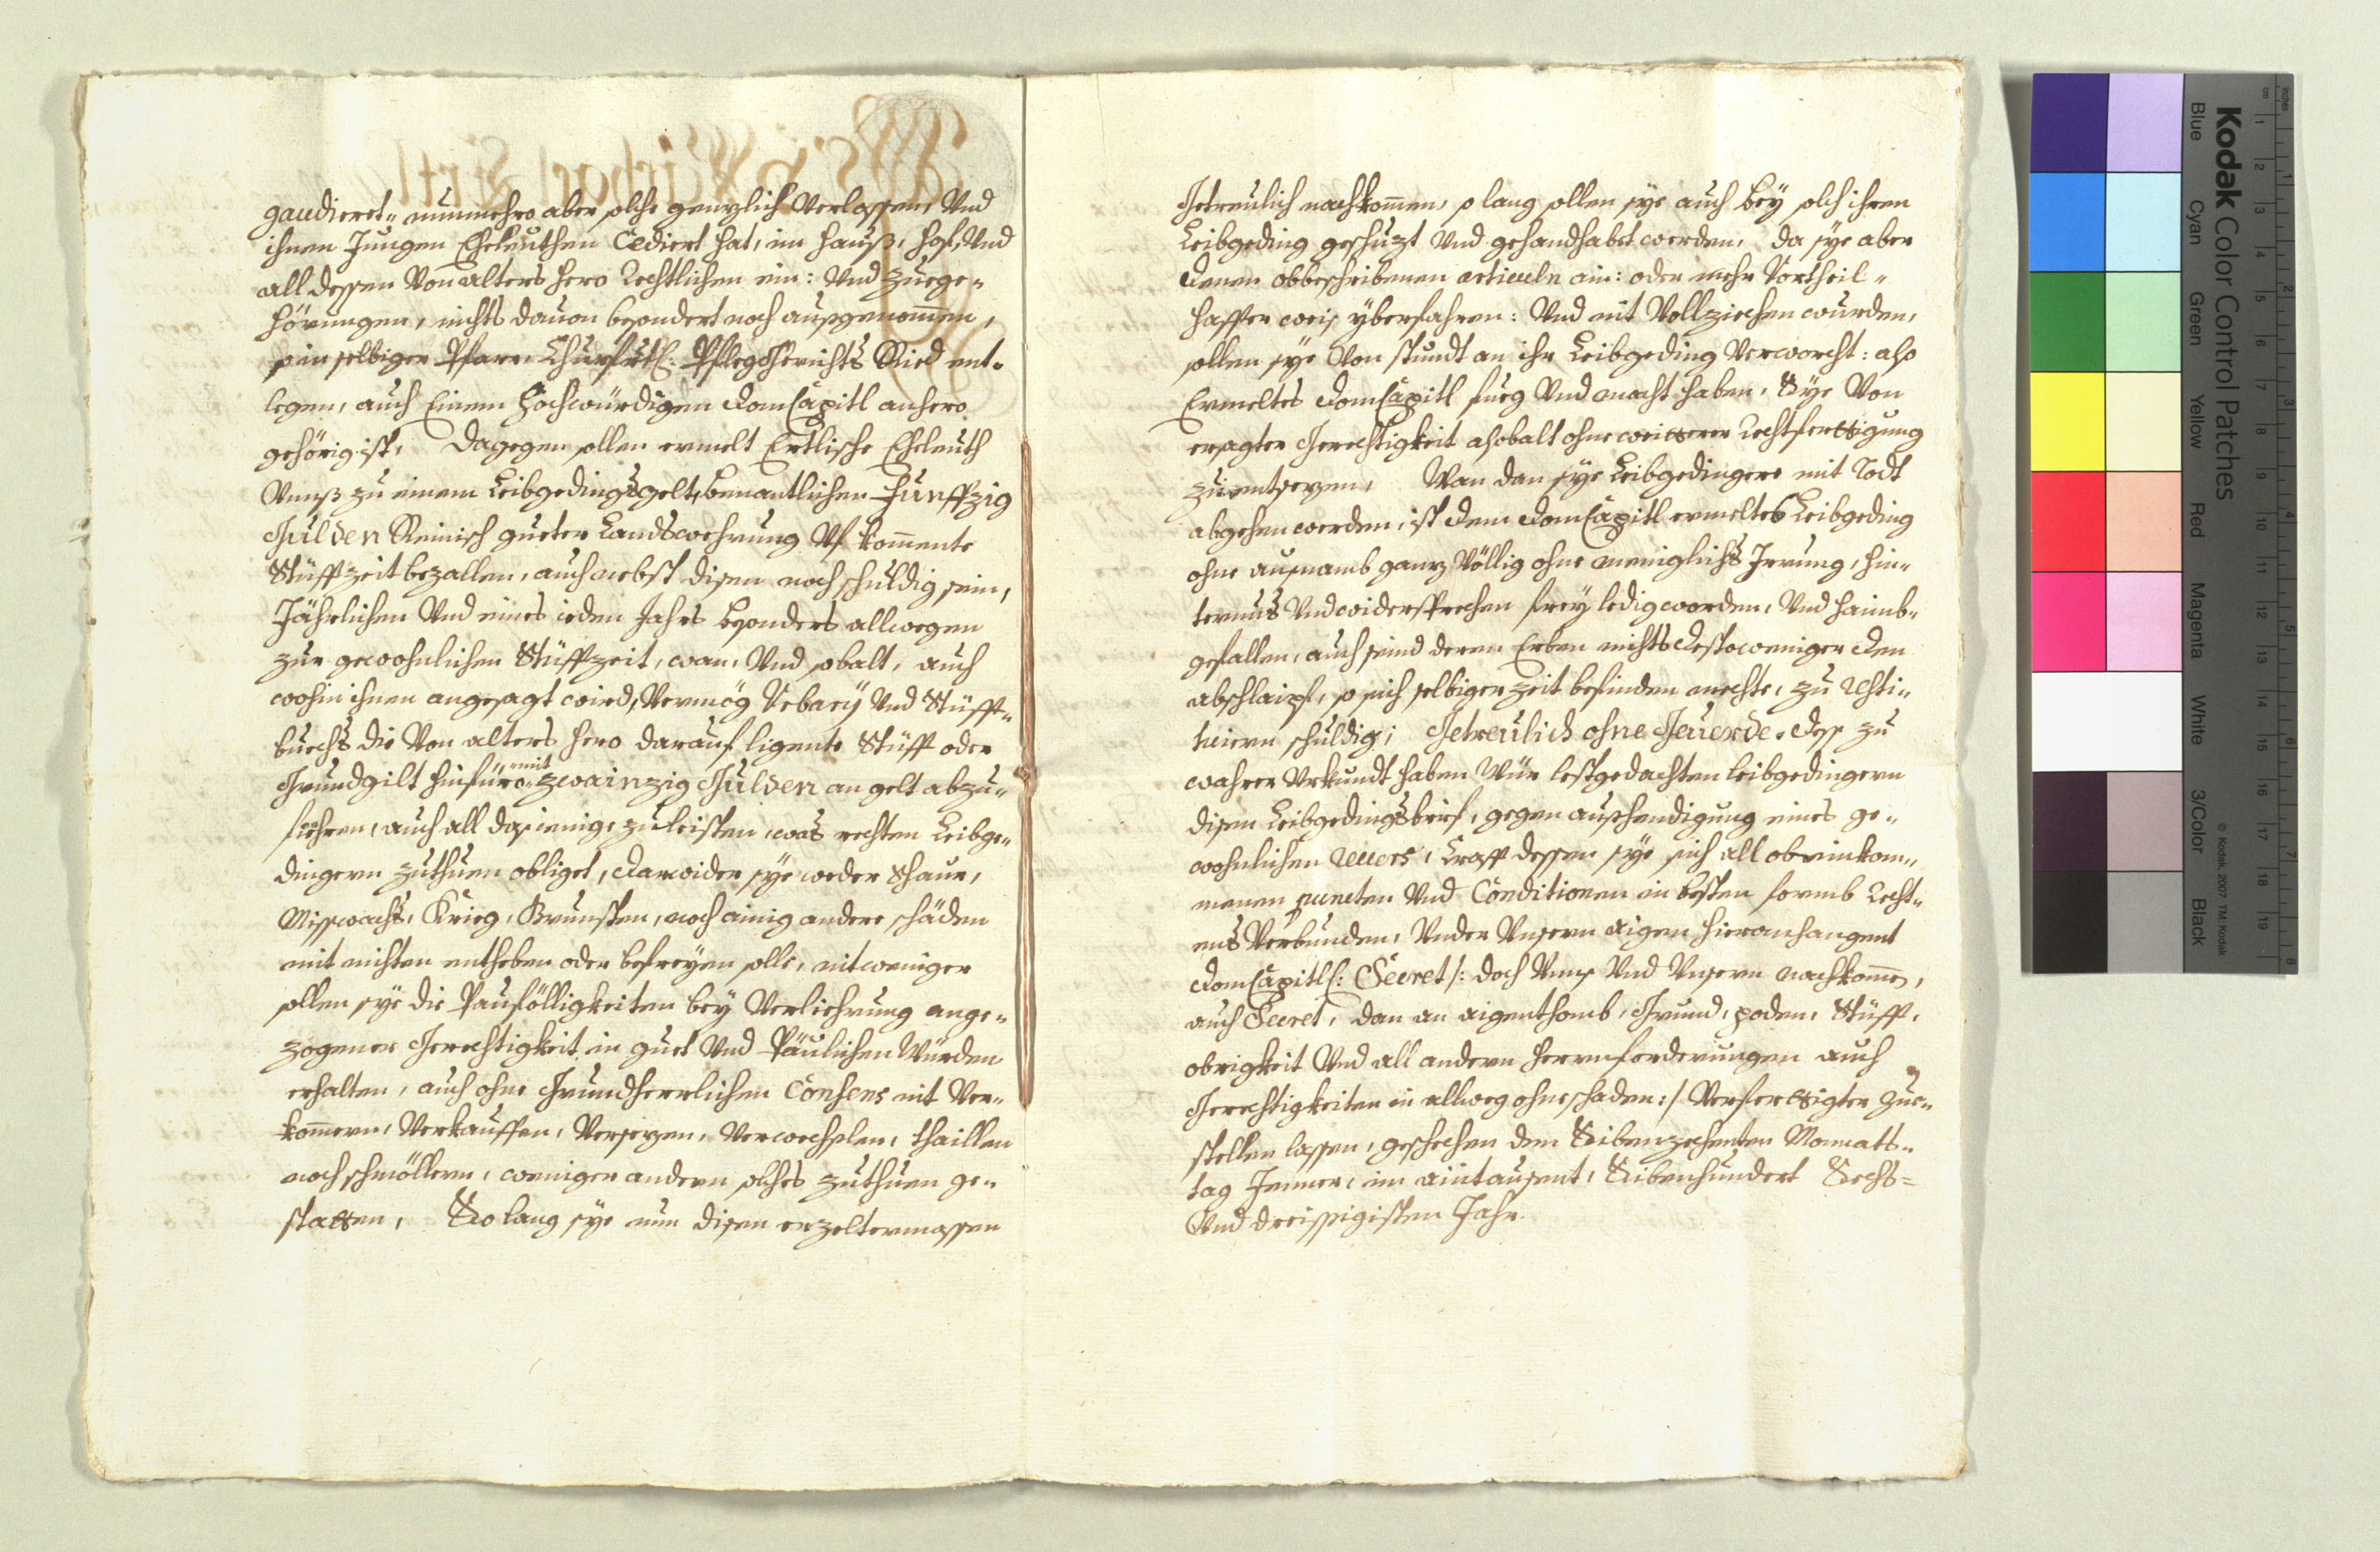 gaudieret„ nunmehro aber solche genzlich Verlassen, Vnd
ihnen Jungen Eheleuthen Cediert hat, im Hauß, Hof, Vnd
all dessen Von alters hero Rechtlichen ein: Vnd Zuege„
hörungen, nichts dauon besondert noch ausgenommen,
so in selbiger Pfarr, Churfrtl: PflegGerichts Ried ent„
legen, auch Einem Hochwürdigen DomCapitl anhero
gehörig ist, Dagegen sollen ermelt Ertlische Eheleuth
Vnnß zu einem Leibgedingsgelt, benantlichen Funffzig
Gulden Reinisch gueter Landswehrung Vf kommente
Stüfftzeit bezallen, auch nebst disen noch schuldig sein,
Jährlichen Vnd eines ieden Jahrs besonders allwegen
zur gewohnlichen Stüfftzeit, wan, Vnd sobalt, auch
wohin ihnen angesagt wird, Vermög Vrbary Vnd Stüfft„
buechs die Von alters hero darauf ligente Stüfft oder
Grundgilt hinfüro„ mit zwainzig Gulden an gelt abzu„
fiehren, auch all dasienige zuleisten, was rechten Leibge„
dingern zuthuen obliget, darwider sye weder Schaur,
Misswachs, Krieg, Brunsten, noch ainig andere schäden
mit nichten entheben oder befreyen solle, nit weniger
sollen sye die Paufölligkeiten bey Verliehrung ange„
zogener Gerechtigkeit in guet Vnd Päulichen Würden
erhalten, auch ohne Grundherrlichen Consens nit Ver„
kommern, Verkauffen, Versezen, Verwechslen, thaillen
noch schmöllern, weniger andern solches zuthuen ge„
statten, So lang sye nun disen erzeltermassen
Getreulich nachkommen, so lang sollen sye auch bey solch ihren
Leibgeding geschuzt Vnd gehandhabt werden, Da sye aber
denen obbeschribenen articuln ain: oder mehr Vortheil„
haffter weis yberfahren: Vnd nit Vollziechen wurden,
sollen sye Von stundt an ihr Leibgeding Verworcht: also
Ermeltes DomCapitl fueg Vnd macht haben, Sye Von
ersagter Gerechtigkeit alsobalt ohne weitterer Rechtferttigung
zu entsezen, Wan dan sye Leibgedingere mit Todt
abgehen werden, ist dem DomCapitl ermeltes Leibgeding
ohne ausnamb ganz Völlig ohne meniglichs Irrung, hin„
ternus Vnd widersprechen frey ledig worden, Vnd haimb„
gefallen, auch seind deren Erben nichts destoweniger den
abschlaipf, so sich selbiger Zeit befinden mechte, zu Resti„
tuiern schuldig; Getreulich ohne Geuerde. Dess zu
wahrer Vrkundt haben Wür lestgedachten leibgedingern
disen Leibgedingsbrief, gegen aushendigung eines ge„
wohnlichen Reuers, Krafft dessen sye sich all obeinkom„
menen puncten Vnd Conditionen in besten formb Recht„
ens Verbunden, Vnder Vnsern aigen hieranhangent
DomCapitl: Secret /: doch Vnns Vnd Vnsern nachkommen,
auch Secret, dan an aigenthomb, Grund, poden, Stüfft,
obrigkeit Vnd all andern Herrnforderungen auch
Gerechtigkeiten in allweg ohne schaden :/ Verferttigter Zue„
stellen lassen, geschechen den Sibenzechenten Monnatts„
tag Jenner, im aintausent, Sibenhundert Sechs=
Vnd dreissigisten Jahr.
Kodak Color Control Patches
Blue
Cyan
Green
Yellow
Red
Magenta
White
3/Color
Black
© Kodak, 2007 TM: Kodak
cm
1
2
3
4
5
6
7
8
9
10
11
12
13
14
15
16
17
18
19
inches
1
2
3
4
5
6
7
8